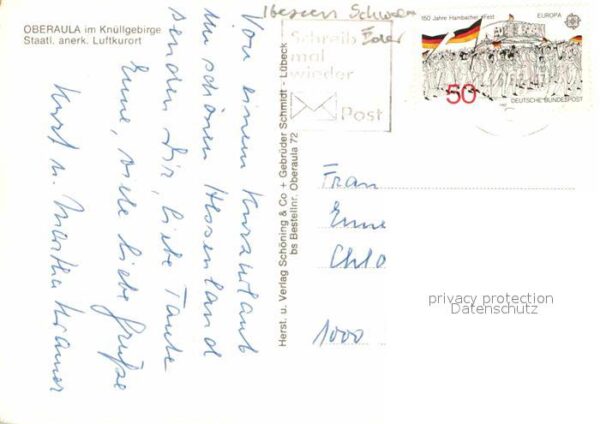 OBERAULA im Knüllgebirge
Staatl. anerk. Luftkurort
Von einem Kurzurlaub
im schönen Hessenland
senden Dir, liebe Tante
Enne, viele liebe Grüße
Kurt u. Martha Kramer
Herst. u. Verlag Schöning & Co + Gebrüder Schmidt - Lübeck
bs Bestellnr. Oberaula 72
Schreib
mal
wieder
Post
150 Jahre Hambacher Fest
EUROPA
CEPT
50
DEUTSCHE BUNDESPOST
Frau
Enne
Chlo
1000
privacy protection
Datenschutz